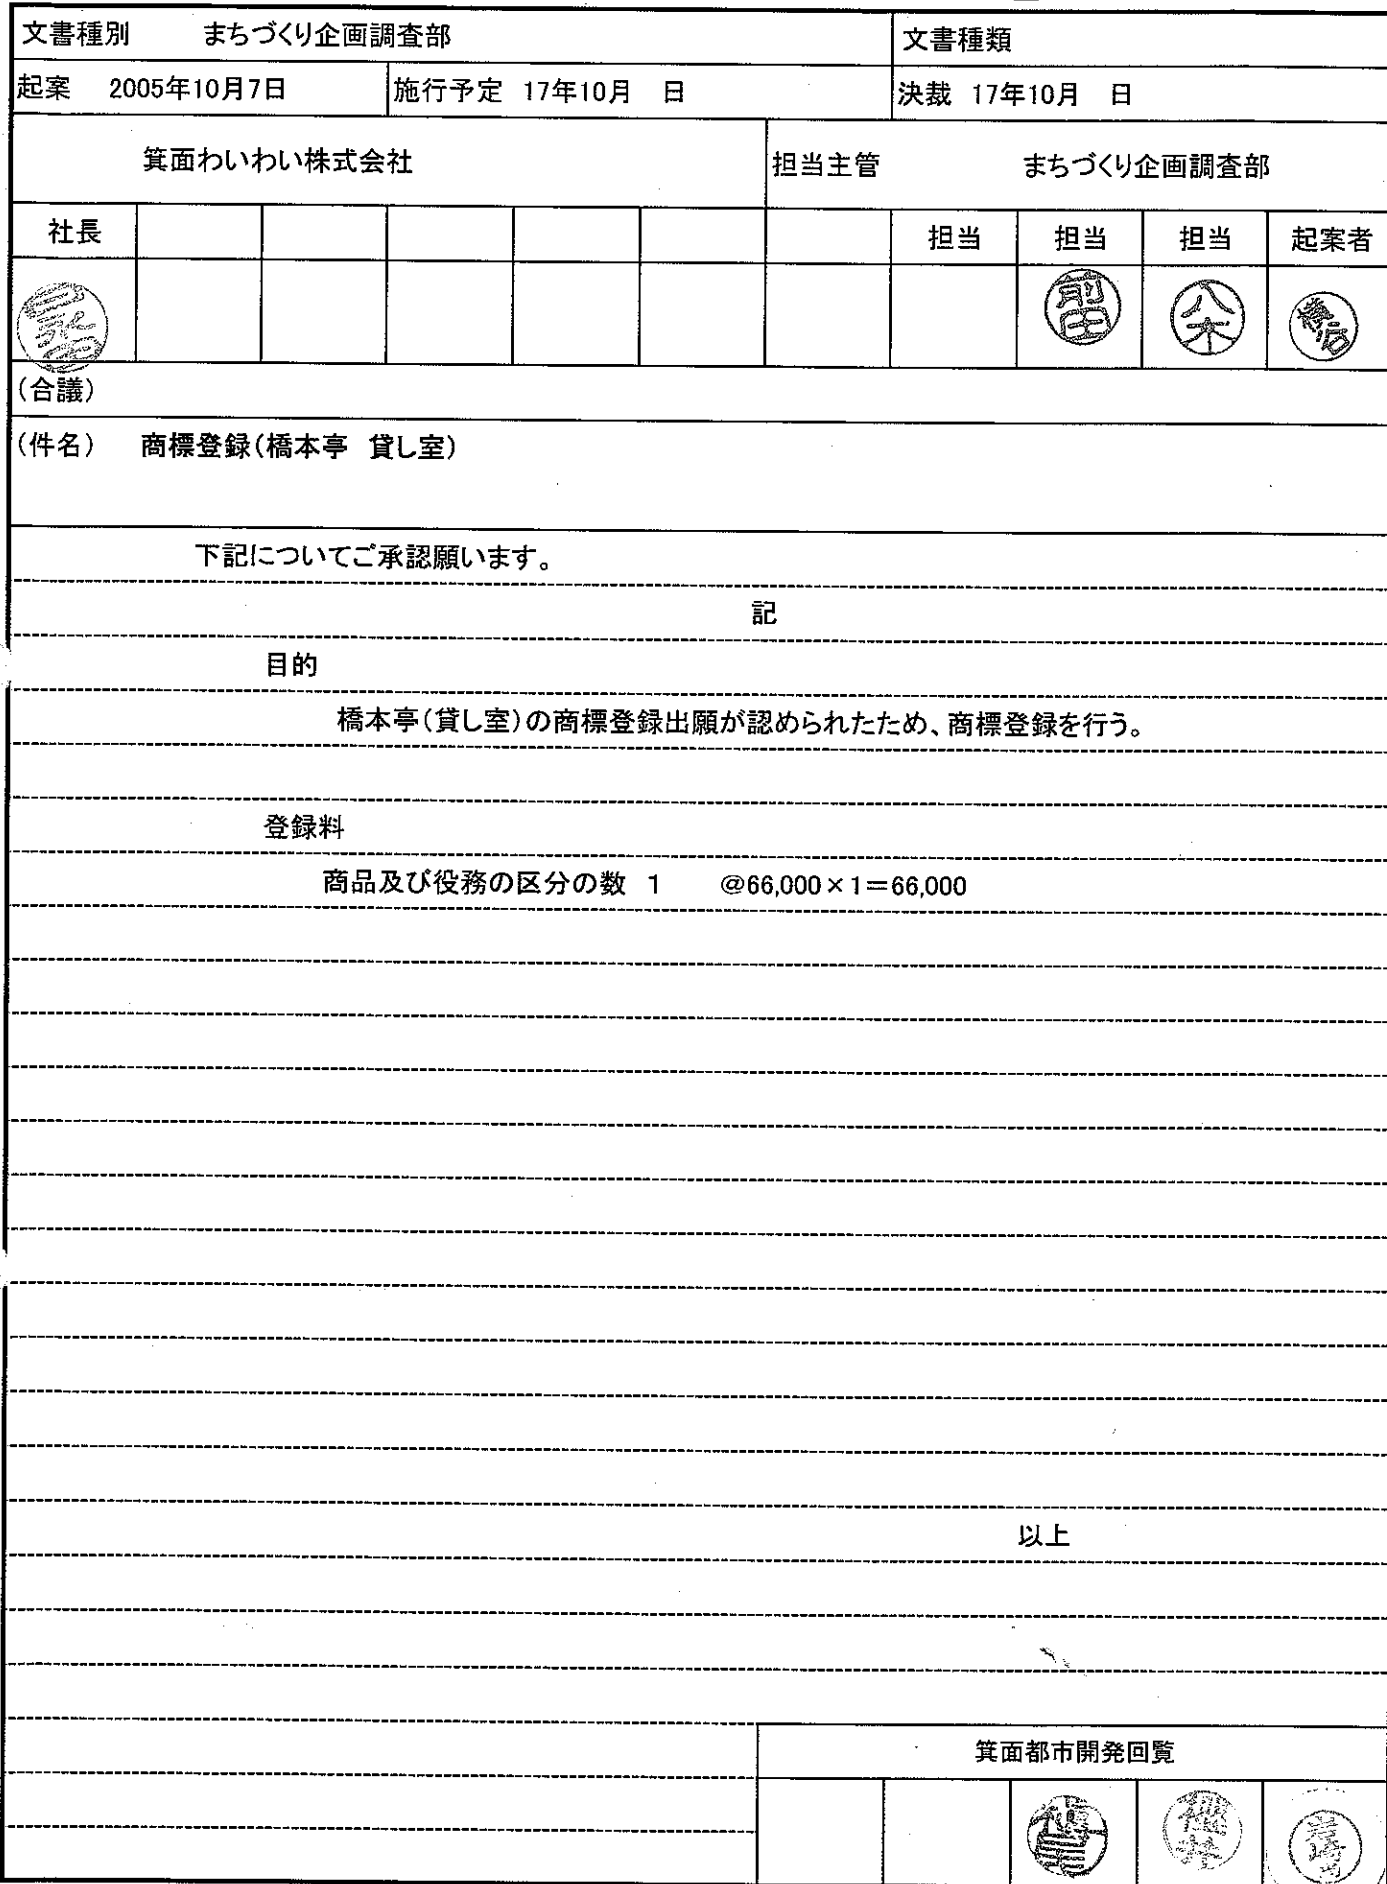 文書種別　まちづくり企画調査部　文書種類
起案　2005年10月7日　施行予定　17年10月　日　決裁　17年10月　日
箕面わいわい株式会社　担当主管　まちづくり企画調査部
社長　担当　担当　担当　起案者
前田　八木
(合議)
(件名)　商標登録(橋本亭　貸し室)
下記についてご承認願います。
記
目的
橋本亭(貸し室)の商標登録出願が認められたため、商標登録を行う。
登録料
商品及び役務の区分の数　1　@66,000×1=66,000
以上
箕面都市開発回覧
岩崎